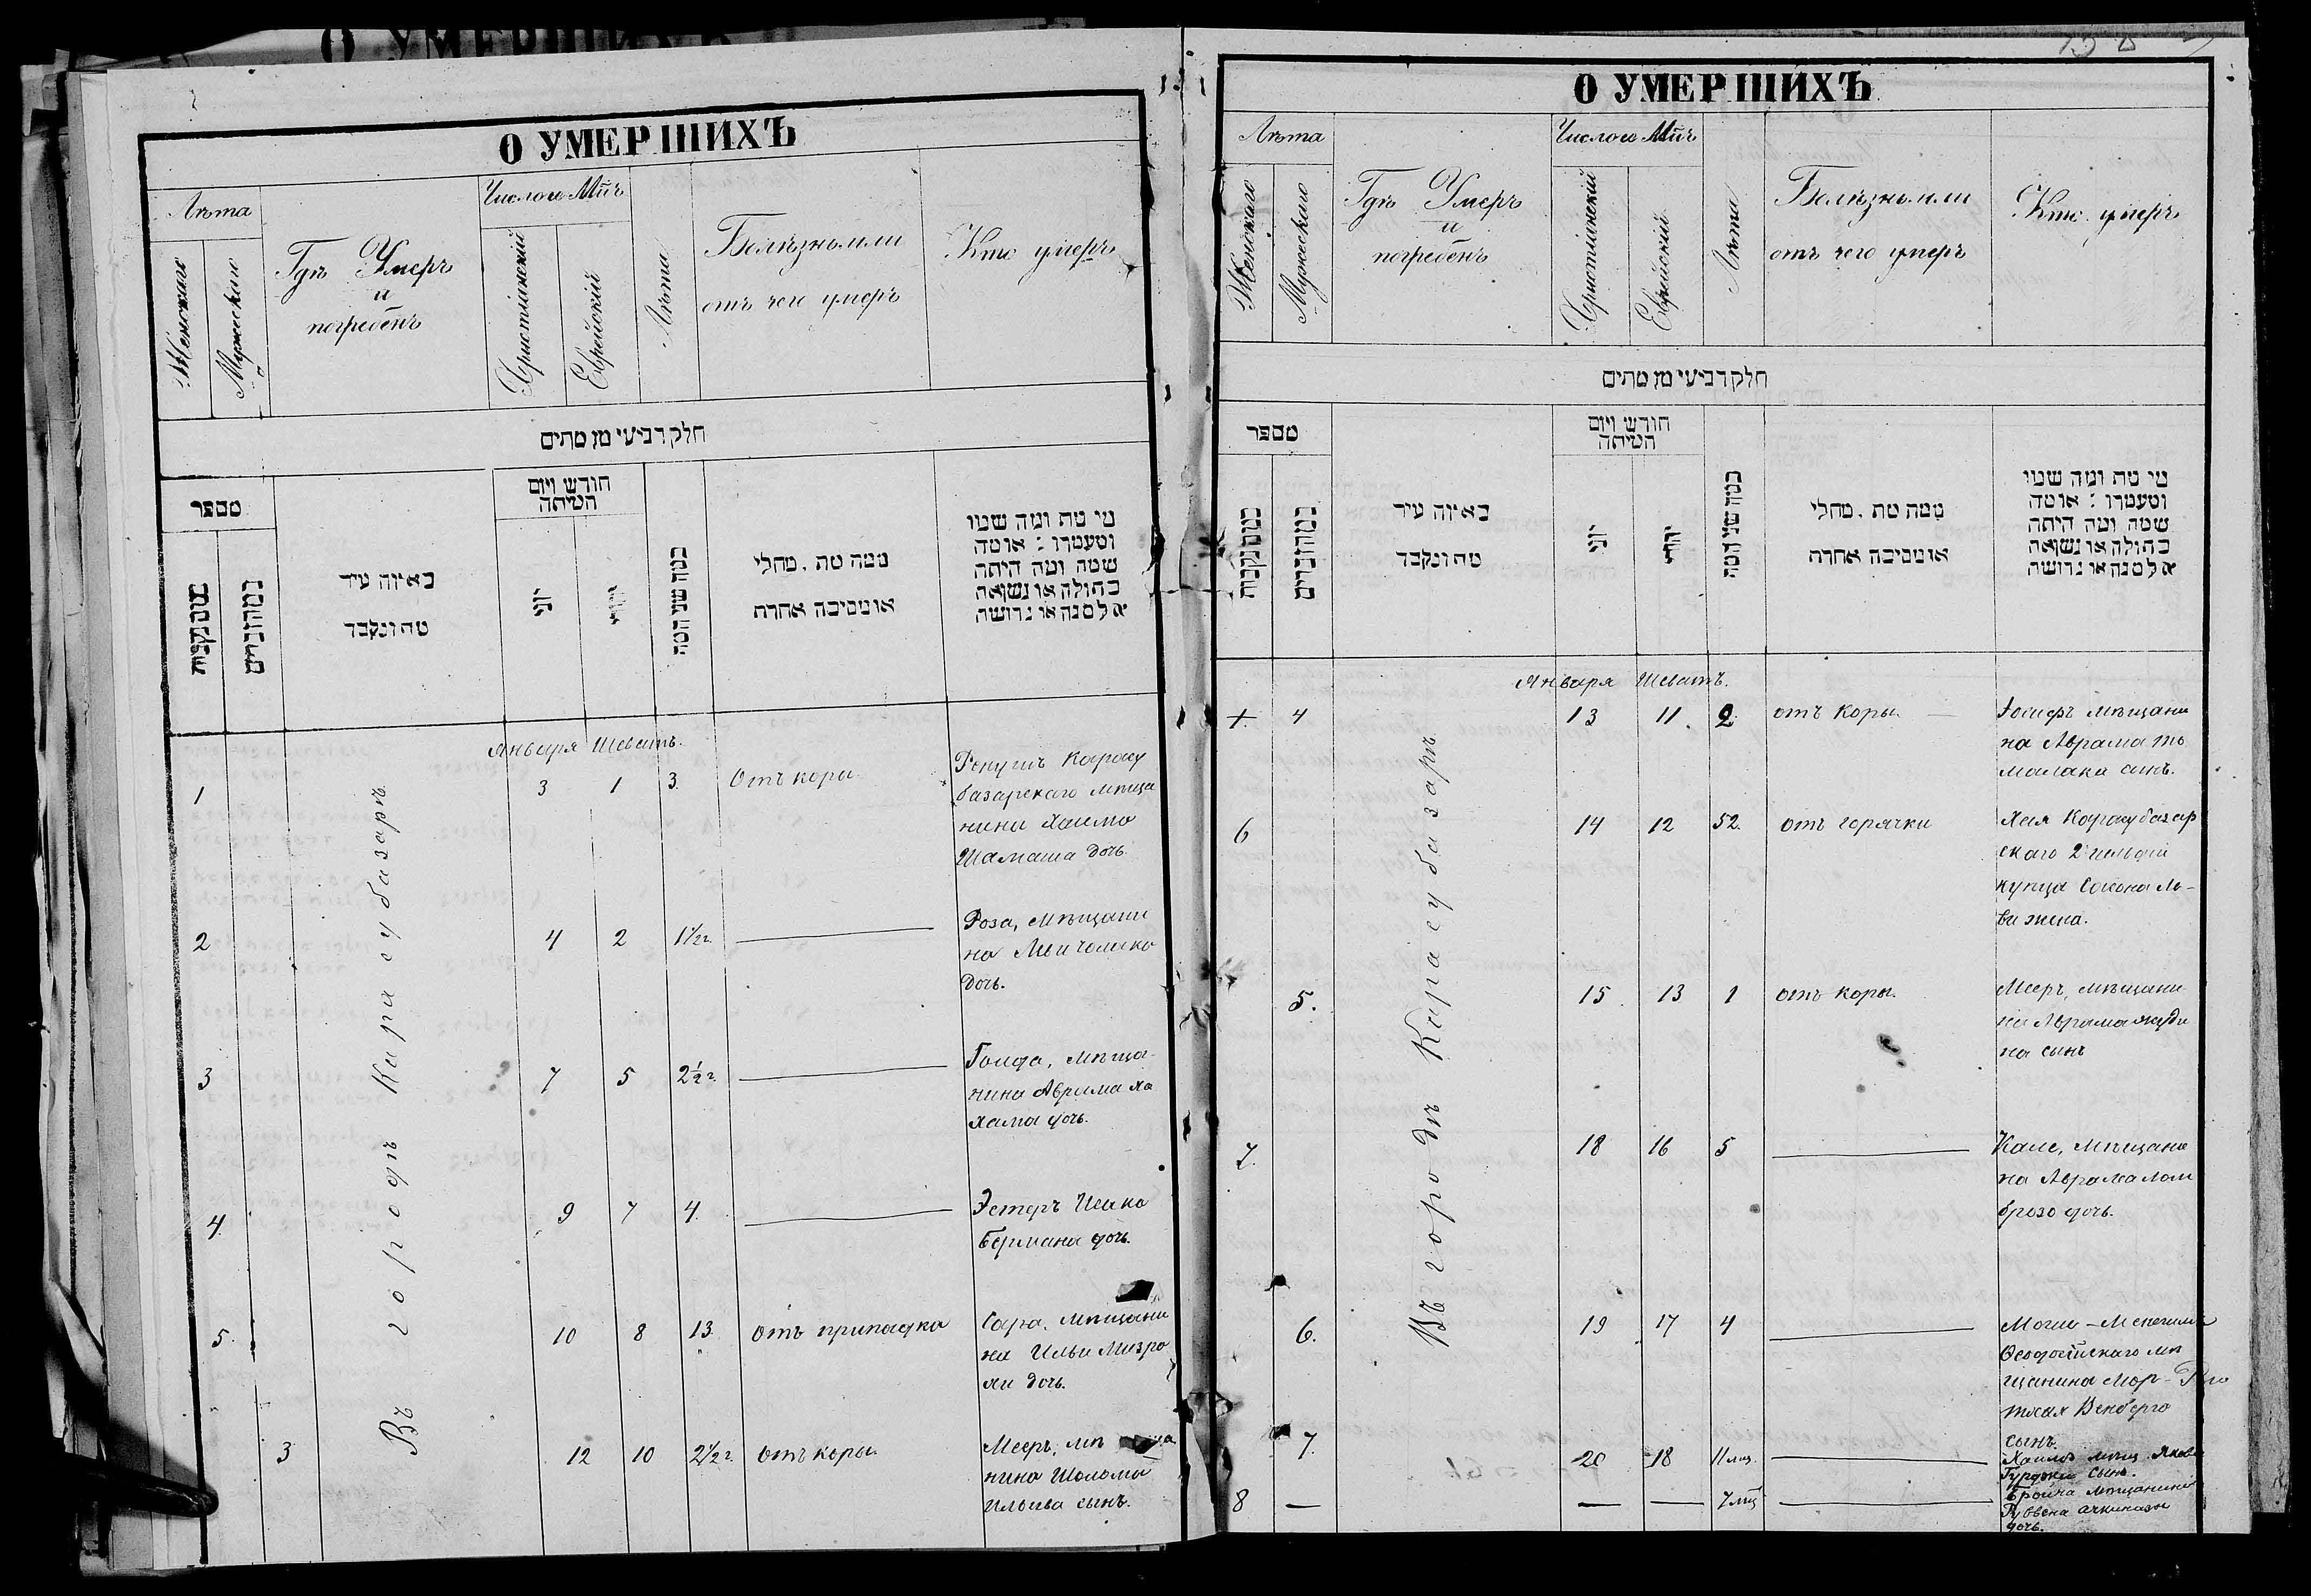 О УМЕРШИХЪ
Лѣта
Женскаго
Мужескаго
Гдѣ Умеръ
и
погребенъ
Число и Мѣ̃ц
Христіанскій
Еврейскій
Лѣта
Болѣзнь или
отъ чего умеръ
Кто умеръ
חלק רביעי מן מתים
מספר
במס נקבות
במס זכרים
באיזה עיר
מת ונקבר
חודש ויום
המיתה
יוני
יהודי
כמה שני המת
ממה מת . מחלי
או מסיבה אחרת
מי מת ומה שמו
ומעמדו : או מה
שמה ומה היתה
בתולה או נשואה
אלמנה או גרושה
Января Шеватъ.
Въ городѣ Карасубазарѣ
1 3 1 3. Отъ коры
базарскаго мѣща
нина Хаима
Шамаша дочь.
2 4 2 1½ г. —
Роза, мѣщани
на
дочь.
3 7 5 2½ г. —
мѣща-
нина Аврама Ха
хама дочь.
4. 9 7 4. —
Эстеръ Исака
Бермана дочь.
5. 10 8 13. отъ припадка
Сара, мѣщани
на Ильи Мизра
хи дочь.
3 12 10 2½ г. отъ коры.
Мееръ, мѣ
нина Шолома
Ильива сынъ.
О УМЕРШИХЪ
Лѣта
Женскаго
Мужескаго
Гдѣ Умеръ
и
погребенъ
Число и Мѣ̃ц
Христіанскій
Еврейскій
Лѣта
Болѣзнь или
отъ чего умеръ
Кто умеръ
חלק רביעי מן מתים
מספר
במס נקבות
במס זכרים
באיזה עיר
מת ונקבר
חודש ויום
המיתה
יוני
יהודי
כמה שני המת
ממה מת . מחלי
או מסיבה אחרת
מי מת ומה שמו
ומעמדו : או מה
שמה ומה היתה
בתולה או נשואה
אלמנה או גרושה
Января Шеватъ.
Въ городѣ Карасубазарѣ
4 13 11. 2. отъ коры. —
Іосифъ мѣщани
на Аврама
сынъ.
6 14 12 52. отъ горячки
Хая Карасубазар
скаго 2 гильдіи
купца Ле-
ви жена.
5. 15. 13 1 отъ коры.
Мееръ, мѣщани-
на Аврама
на сынъ
7. 18 16 5 —
Кале, мѣщани
на Аврама Лом
брозо дочь.
6. 19 17 4 —
Ѳеодосійскаго мѣ
щанина Мор-
сынъ.
7. 20 18 11 мц. —
Хаимъ мѣщ. Якова
Гурджи сынъ.
8 — — — 7 мц —
мѣщанина
Рувена
дочь.